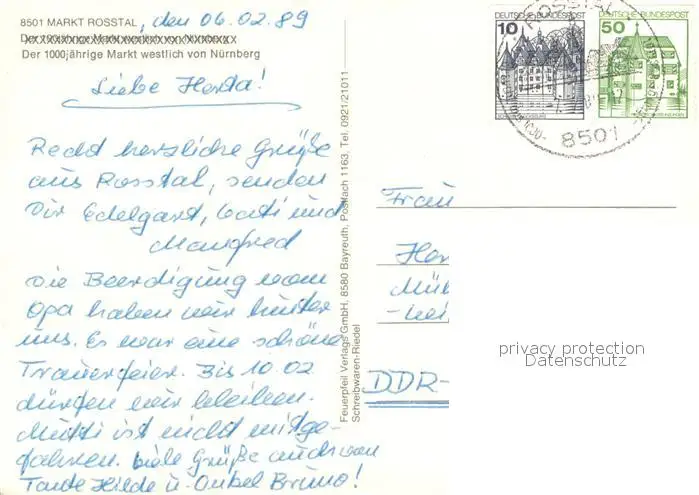 8501 MARKT ROSSTAL, den 06.02.89
Der 1000jährige Markt westlich von Nürnberg
Liebe Herta!
Recht herzliche Grüße
aus Rosstal, senden
Dir Edelgart, Gati und
Manfred
Die Beerdigung vom
Opa haben wir hinter
uns. Es war eine schöne
Trauerfeier. Bis 10.02
dürfen wir bleiben.
Mutti ist nicht mitge-
fahren. Viele Grüße auch von
Tante Hilde u. Onkel Bruno!
Feuerpfeil Verlags GmbH, 8580 Bayreuth, Postfach 1163, Tel. 0921/21011
Schreibwaren-Riedel
DEUTSCHE BUNDESPOST
10
DEUTSCHE BUNDESPOST
50
ROSSTAL
8501
Frau
Her
Mü
DDR-
privacy protection
Datenschutz